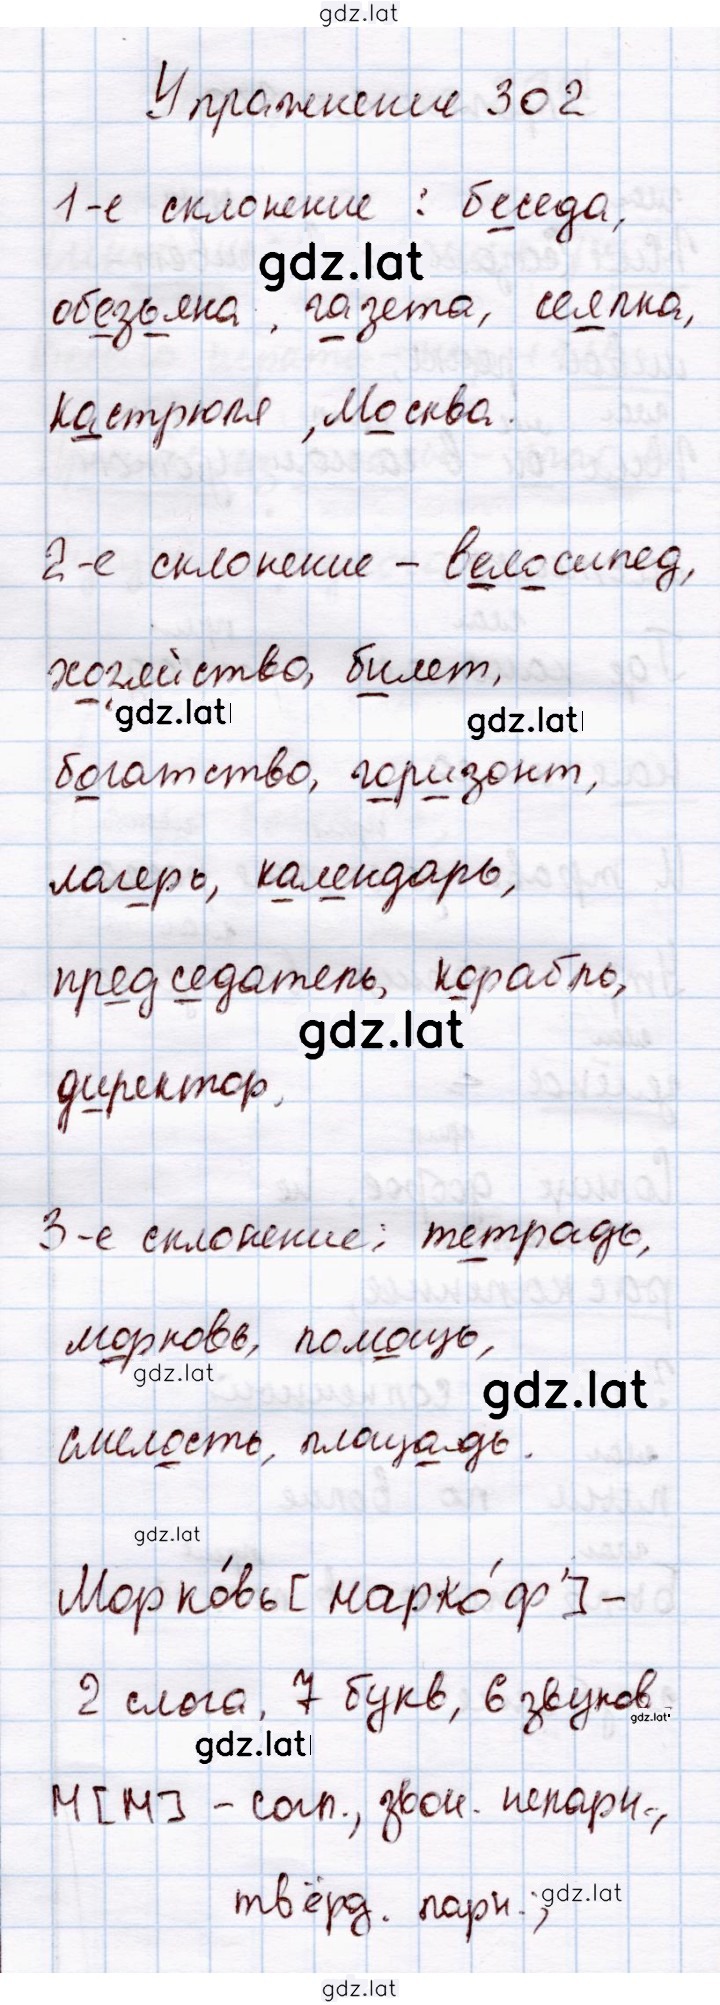 gdz.lat
Упражнение 302
1-е склонение : беседа,
gdz.lat
обезьяна, газета, сеялка,
кастрюля, Москва.
2-е склонение – велосипед,
хозяйство, билет,
gdz.lat gdz.lat
богатство, горизонт,
лагерь, календарь,
председатель, корабль,
gdz.lat
директор.
3-е склонение: тетрадь,
морковь, помощь,
gdz.lat gdz.lat
смелость, площадь.
gdz.lat
Морко́вь [марко́ф'] –
2 слога, 7 букв, 6 звуков.
gdz.lat
gdz.lat
М [м] – согл., звон. непарн.,
твёрд. парн.;
gdz.lat
gdz.lat